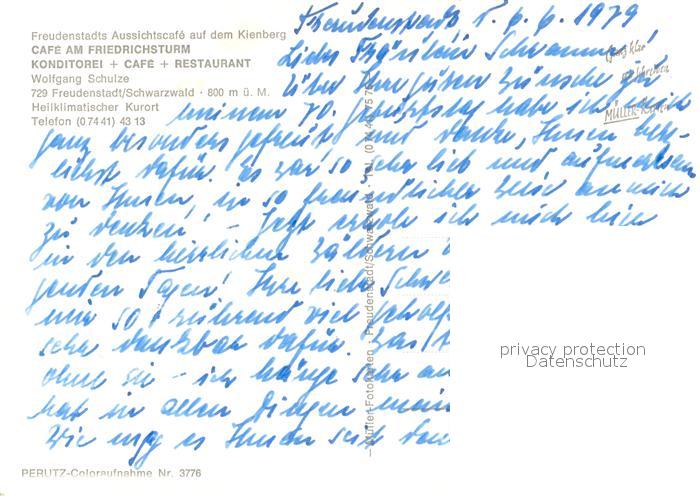 Freudenstadts Aussichtscafé auf dem Kienberg
CAFÉ AM FRIEDRICHSTURM
KONDITOREI + CAFÉ + RESTAURANT
Wolfgang Schulze
729 Freudenstadt/Schwarzwald · 800 m ü. M.
Heilklimatischer Kurort
Telefon (0 74 41) 43 13
Freudenstadt, 6. 6. 1979
Liebes Fräulein
Über Ihre guten Wünsche zu
meinem 70. Geburtstag habe ich mich
ganz besonders gefreut und danke Ihnen herz-
lichst dafür. Es war so sehr lieb und aufmerksam
von Ihnen, in so freundlicher Weise an mich
zu denken! – Jetzt erhole ich mich hier
in den herrlichen Wäldern
genden Tagen! Ihre liebe Schwe
mir so rührend viel geholf
sehr dankbar dafür. Was
ohne sie – ich hänge sehr an
hat in allen Dingen mein
Wie mag es Ihnen seit dem
MÜLLER
Müller-Fotokarten · Freudenstadt/Schwarzwald · Tel. (07441)
PERUTZ-Coloraufnahme Nr. 3776
privacy protection
Datenschutz